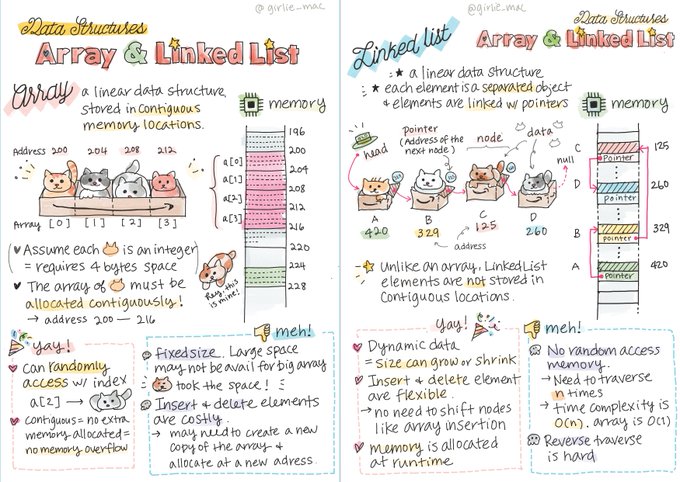 @girlie_mac
Data Structures
Array & Linked List
Array
a linear data structure,
stored in contiguous
memory locations.
memory
Address 200 204 208 212
Array [0] [1] [2] [3]
196
200
204
208
212
216
220
224
228
a[0]
a[1]
a[2]
a[3]
Hey, this
is mine!
Assume each is an integer
= requires 4 bytes space
The array of must be
allocated contiguously!
→ address 200 — 216
yay!
can randomly
access w/ index
a[2] →
contiguous = no extra
memory allocated =
no memory overflow
meh!
Fixed size. Large space
may not be avail for big array
took the space!
Insert & delete elements
are costly.
→ may need to create a new
copy of the array &
allocate at a new adress.
@girlie_mac
Data Structures
Array & Linked List
Linked list
★ a linear data structure
★ each element is a separated object
& elements are linked w/ pointers
memory
head
pointer
(Address of the
next node)
node
data
null
A
420
B
329
C
125
D
260
address
C
pointer
125
D
pointer
260
B
pointer
329
A
pointer
420
Unlike an array, Linked List
elements are not stored in
contiguous locations.
yay!
Dynamic data
= size can grow or shrink
Insert & delete element
are flexible.
→ no need to shift nodes
like array insertion
memory is allocated
at runtime
meh!
No random access
memory.
→ Need to traverse
n times
→ time complexity is
O(n). array is O(1)
Reverse traverse
is hard